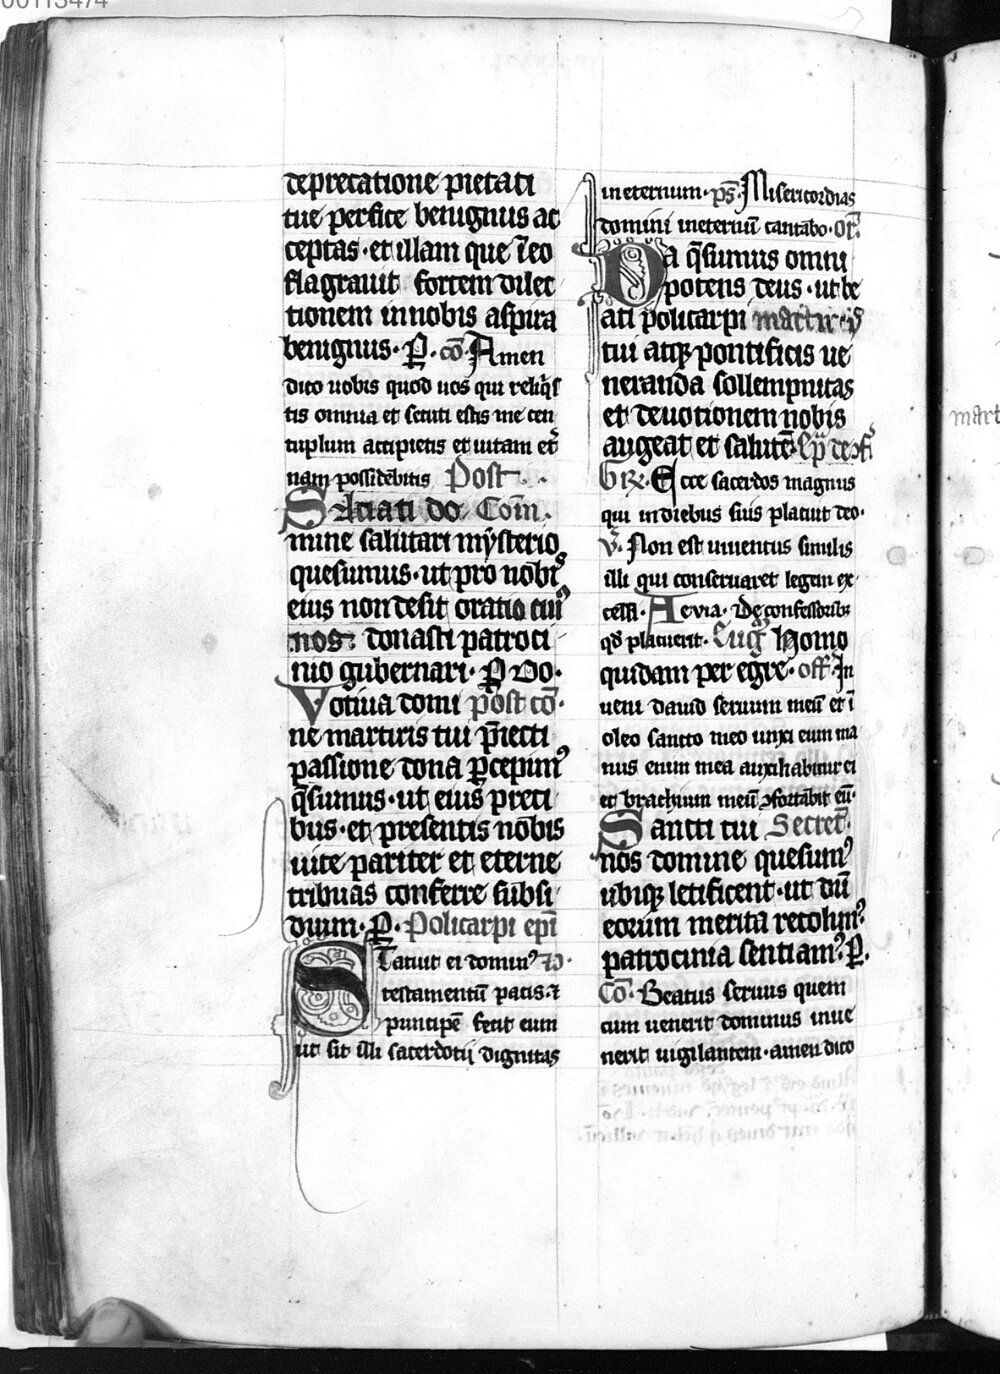 00113474
deprecatione pietati
tue perfice benignus ac
ceptas · et illam que i̅ eo
flagrauit fortem dilec
tionem in nobis aspira
benignus · P̲ · co̅ · Amen
dico uobis quod uos qui reliq̅s
tis omnia et secuti estis me cen
tuplum accipietis et uitam et̅
nam possidebitis Post
Satiati do Com̅
mine salutari mysterio
quesumus · ut pro nobis
eius non desit oratio cui⁹
nos donasti patroci
nio gubernari · P̲ Do ·
Votiua domi post co̅ ·
ne martiris tui p̅iecti
passione dona p̅cepim⁹
q̅sumus · ut eius preci
bus · et presentis nobis
uite pariter et eterne
tribuas conferre subsi
dium · P̲ · Policarpi epi̅
Statuit ei domin⁹
testamentu̅ pacis · ⁊
principe̅ fecit eum
ut sit illi sacerdotii dignitas
in eternum · ps̅ · Misericordias
domini in eternu̅ cantabo · or̅
Da q̅sumus omni
potens deus · ut be
ati policarpi
tui atq̅ pontificis ue
neranda sollempnitas
et deuotionem nobis
augeat et salute̅ ·
Gr̅ · Ecce sacerdos magnus
qui in diebus suis placuit deo ·
v̅ · Non est inuentus similis
illi qui conseruaret legem ex
celsi · Aeuia · De confessoribus
qd̅ placuerit · Homo
quidam per egre · off̅ · In
ueni dauid seruum meu̅ et i̅
oleo sancto meo unxi eum ma
nus enim mea auxiliabitur ei
et brachium meu̅ ꝯfortabit eu̅ ·
Sancti tui Secret̅ ·
nos domine quesum⁹
ubiq̅ letificent · ut du̅
eorum merita recolim⁹
patrocinia sentiam⁹ · P̲ ·
Co̅ · Beatus seruus quem
cum uenerit dominus inue
nerit uigilantem · amen dico
mart